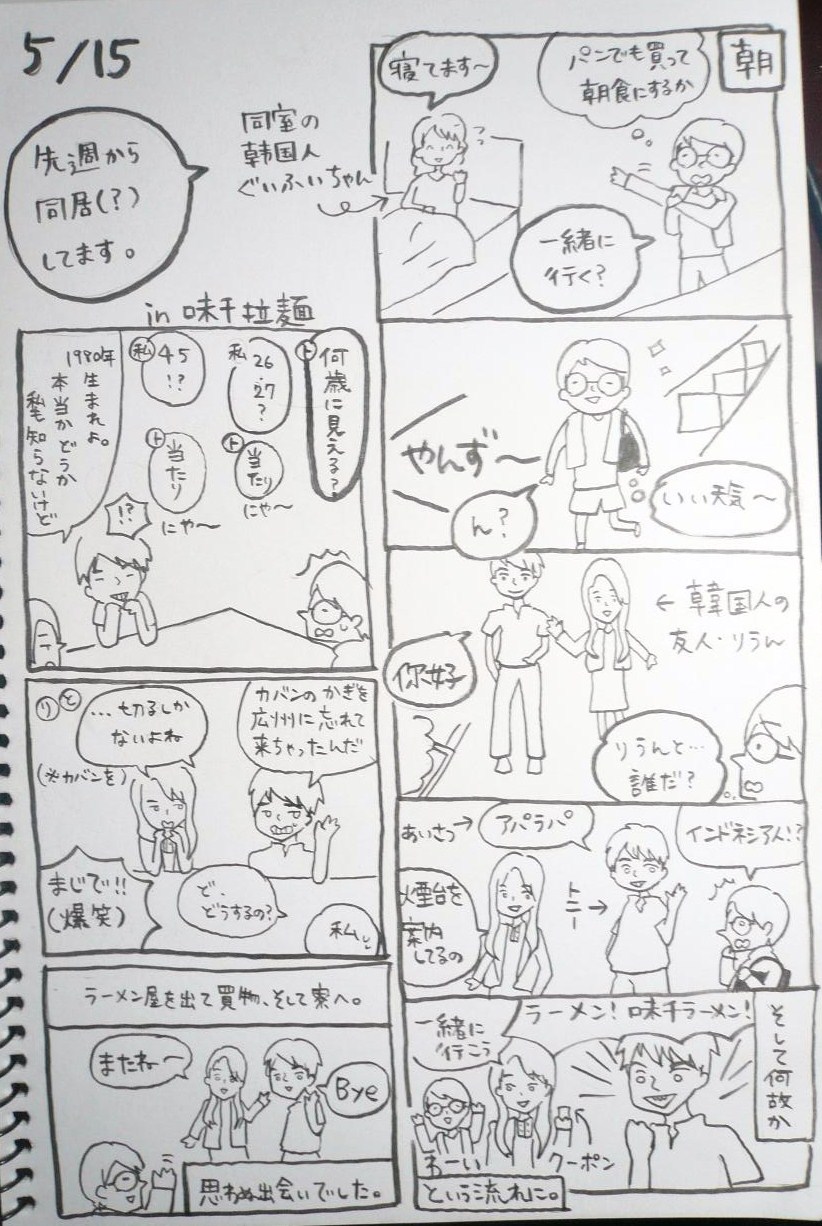 5/15
先週から
同居(?)
してます。
同室の
韓国人
ぐいふぃちゃん
朝
パンでも買って
朝食にするか
寝てます〜
一緒に
行く?
やんず〜
ん?
いい天気〜
←韓国人の
友人・りうん
你好
りうんと…
誰だ?
あいさつ→
アパラパ
インドネシア人!?
トニー→
煙台を
案内
してるの
そして何故か
ラーメン!味千ラーメン!
一緒に
行こう
わーい
クーポン
という流れに。
in 味千拉麺
ト
何歳に見える?
私
26
27
?
ト
当たり
にゃ〜
私
45
!?
ト
当たり
にゃ〜
1980年
生まれよ。
本当かどうか
私も知らないけど
!?
カバンのかぎを
広州に忘れて
来ちゃったんだ
りと
…切るしか
ないよね
(※カバンを)
ど、
どうするの?
私
まじで!!
(爆笑)
ラーメン屋を出て買物、そして寮へ。
またね〜
Bye
思わぬ出会いでした。